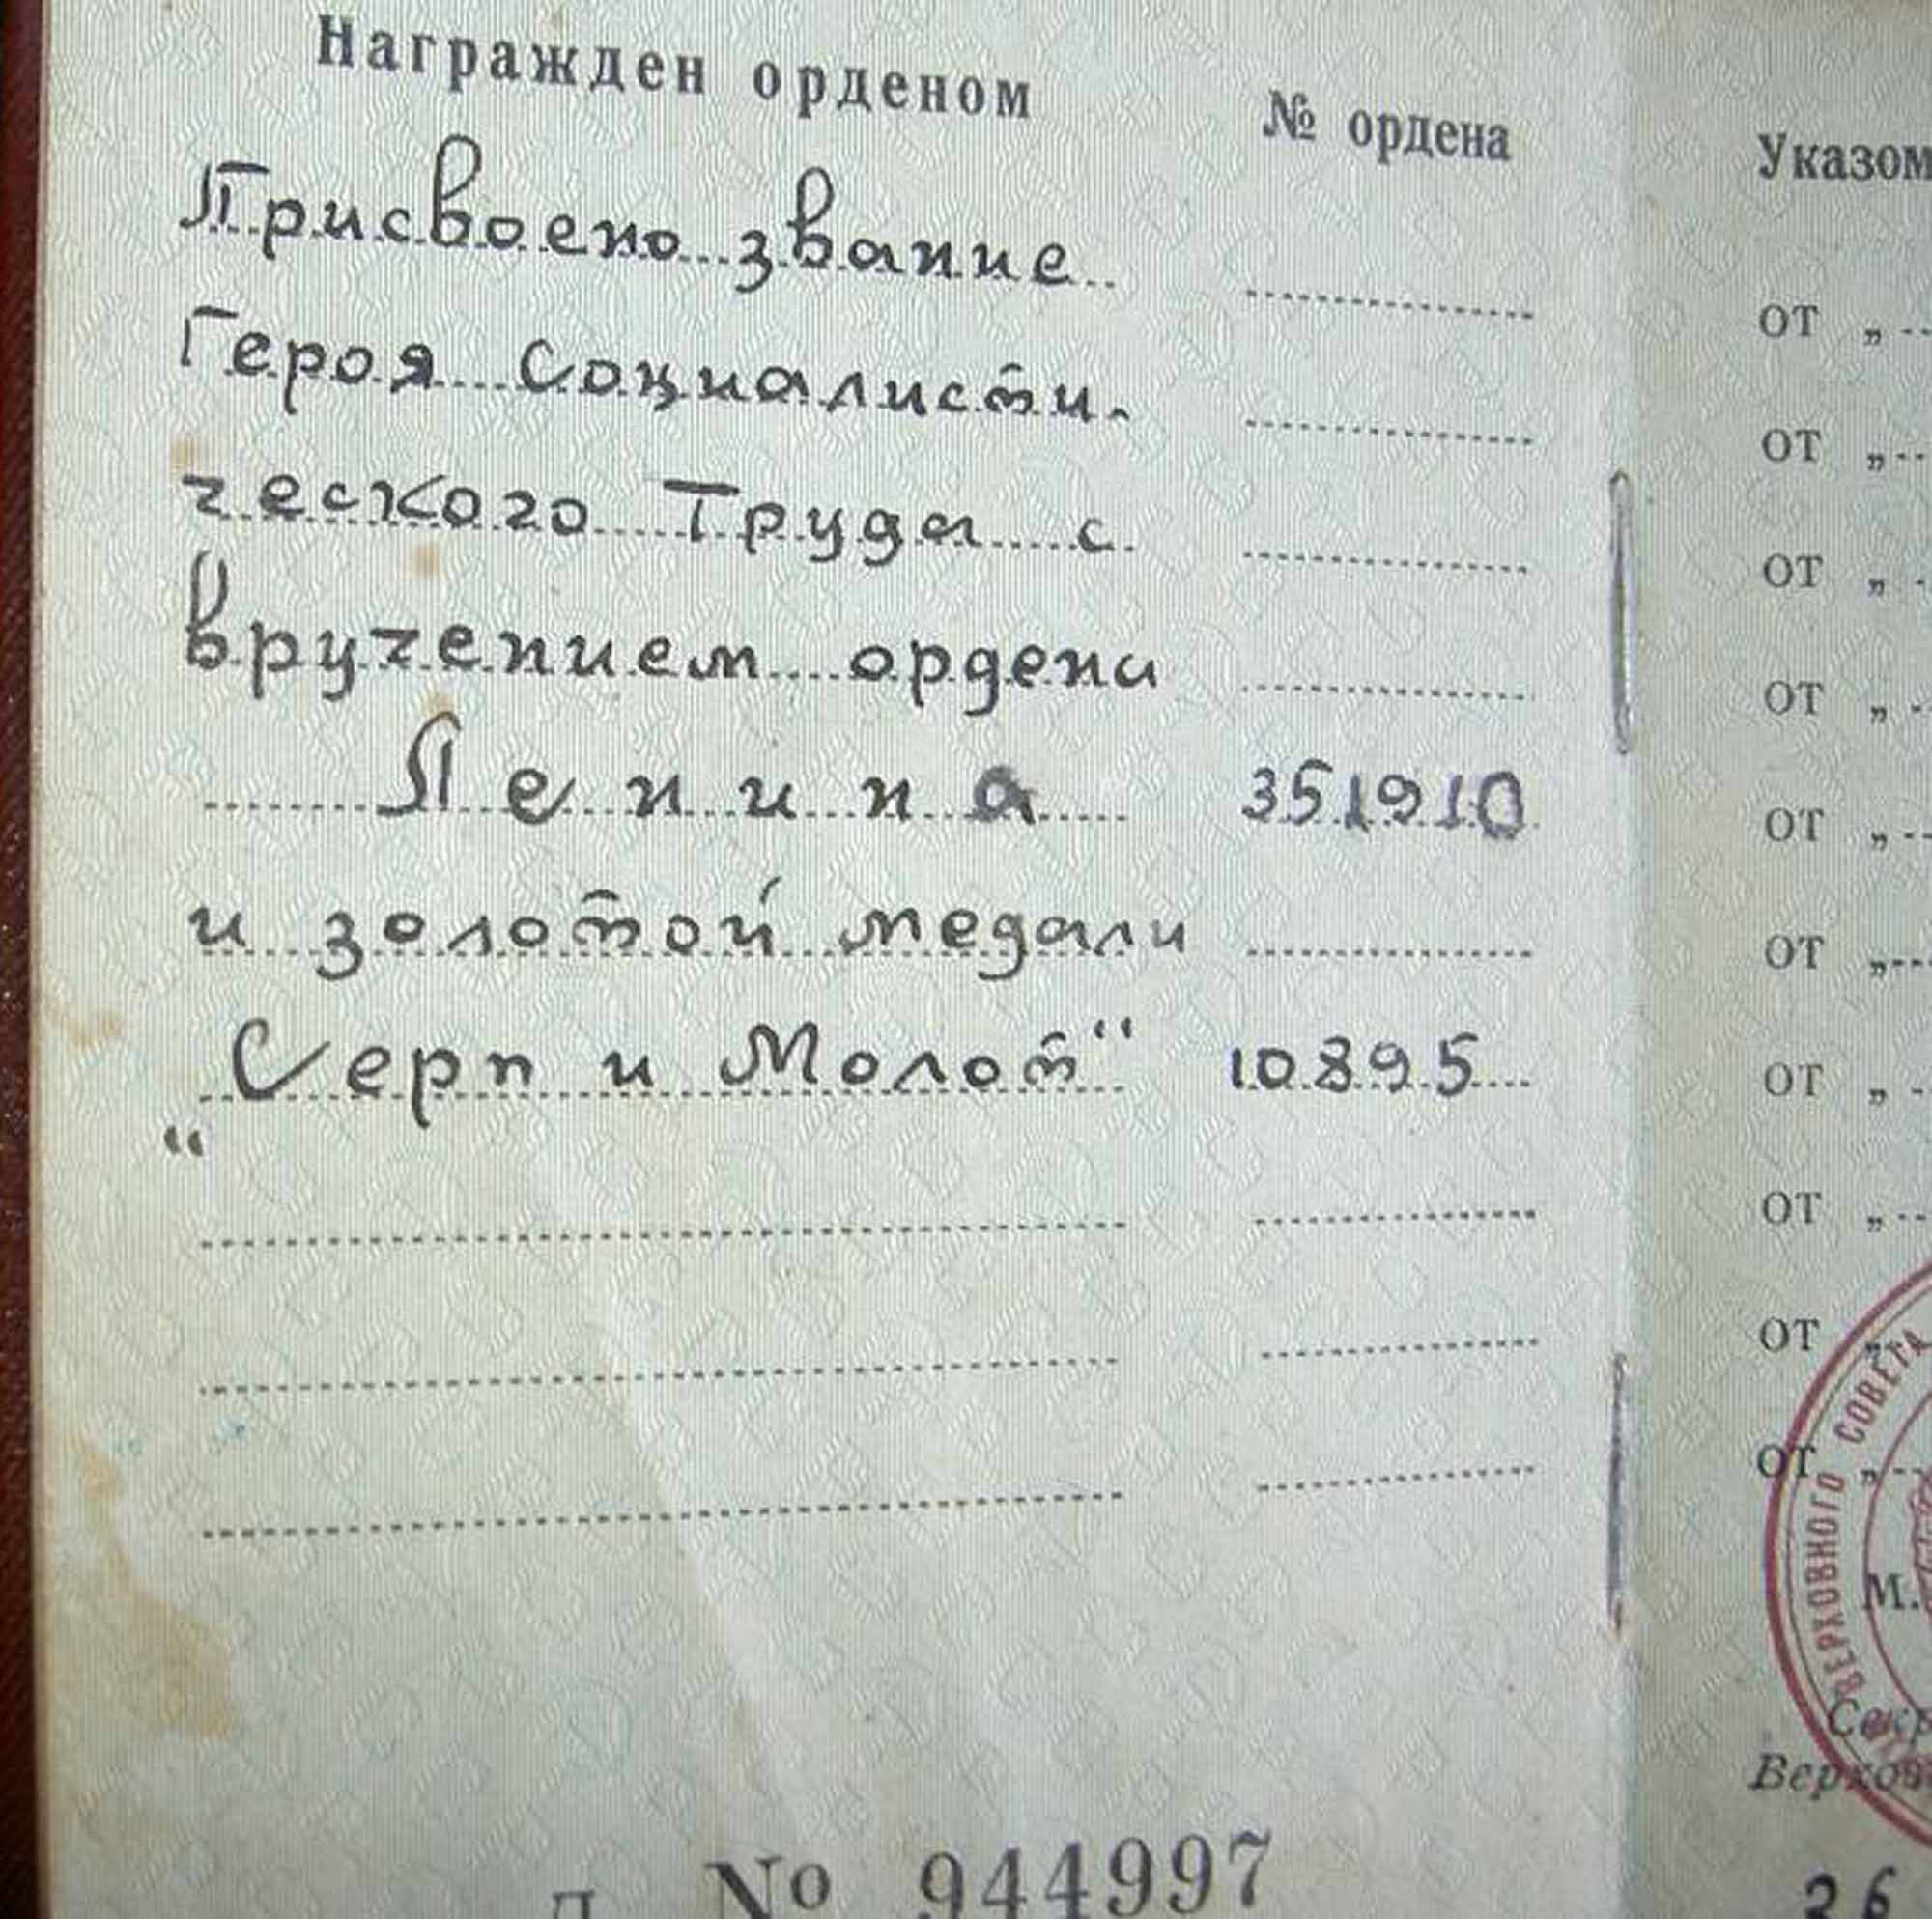 Награжден орденом
№ ордена
Присвоено звание
Героя Социалисти-
ческого Труда с
вручением ордена
Ленина 351910
и золотой медали
„Серп и Молот“ 10895
Л № 944997
Указом
от „
от „
от „
от „
от „
от „
от „
от „
от „
от „
ВЕРХОВНОГО СОВЕТА
М.
Секр
Верхов
26